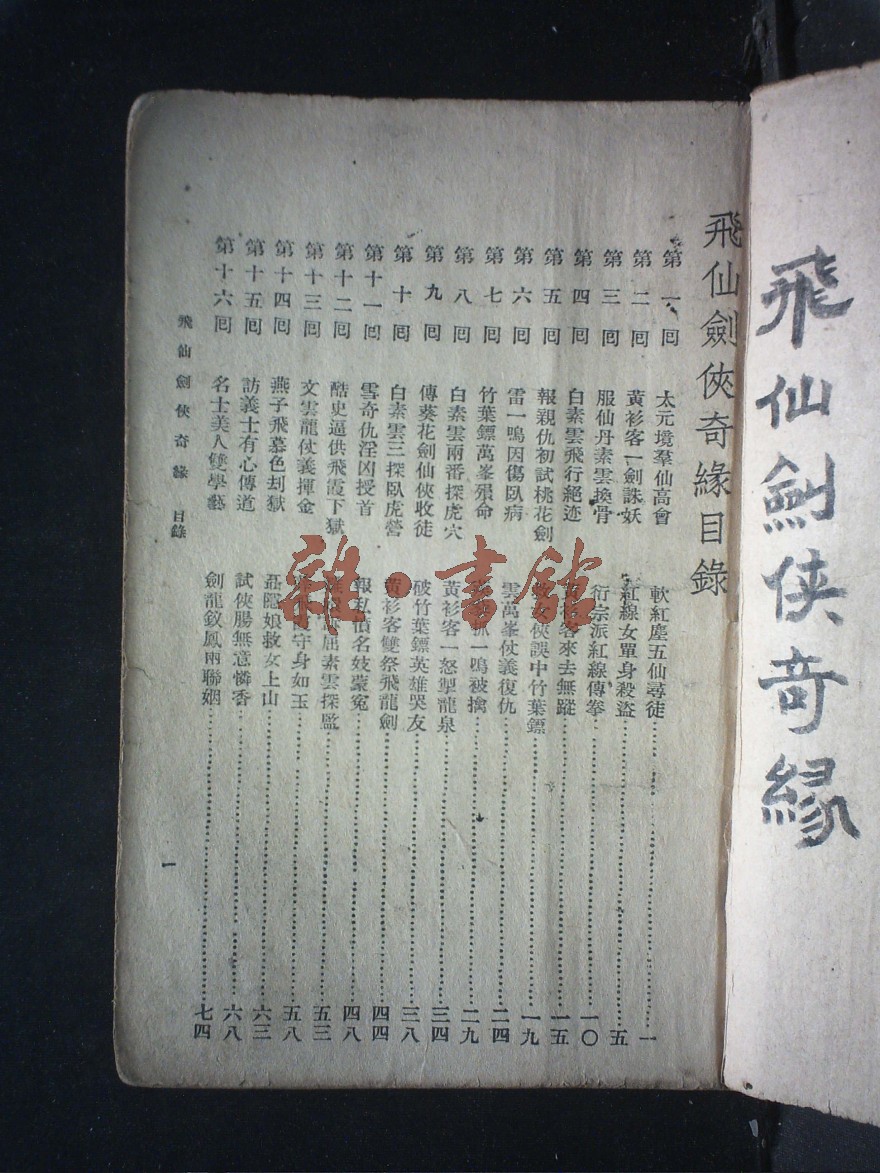 飛仙劍侠奇緣
飛仙劍俠奇緣目錄
第一囘 太元境羣仙高會 軟紅塵五仙尋徒 一
第二囘 黃衫客一劍誅妖 紅線女單身殺盜 五
第三囘 服仙丹素雲換骨 衍宗派紅線傳拳 一〇
第四囘 白素雲飛行絕迹 客來去無蹤 一五
第五囘 報親仇初試桃花劍 女俠誤中竹葉鏢 一九
第六囘 雷一鳴因傷臥病 雲萬峯仗義復仇 二四
第七囘 竹葉鏢萬峯殞命 抓一鳴被擒 二九
第八囘 白素雲兩番探虎穴 黃衫客一怒掣龍泉 三四
第九囘 傳葵花劍仙俠收徒 破竹葉鏢英雄哭友 三八
第十囘 白素雲三探臥虎營 黃衫客雙祭飛龍劍 四四
第十一囘 雪奇仇淫凶授首 報私憤名妓蒙寃 四八
第十二囘 酷吏逼供飛霞下獄 屈素雲探監 五三
第十三囘 文雲龍仗義揮金 守身如玉 五八
第十四囘 燕子飛慕色刦獄 聶隱娘救女上山 六三
第十五囘 訪義士有心傳道 試俠腸無意憐香 六八
第十六囘 名士美人雙學藝 劍龍釵鳳兩聯姻 七四
飛仙劍俠奇緣 目錄
一
雜·書館